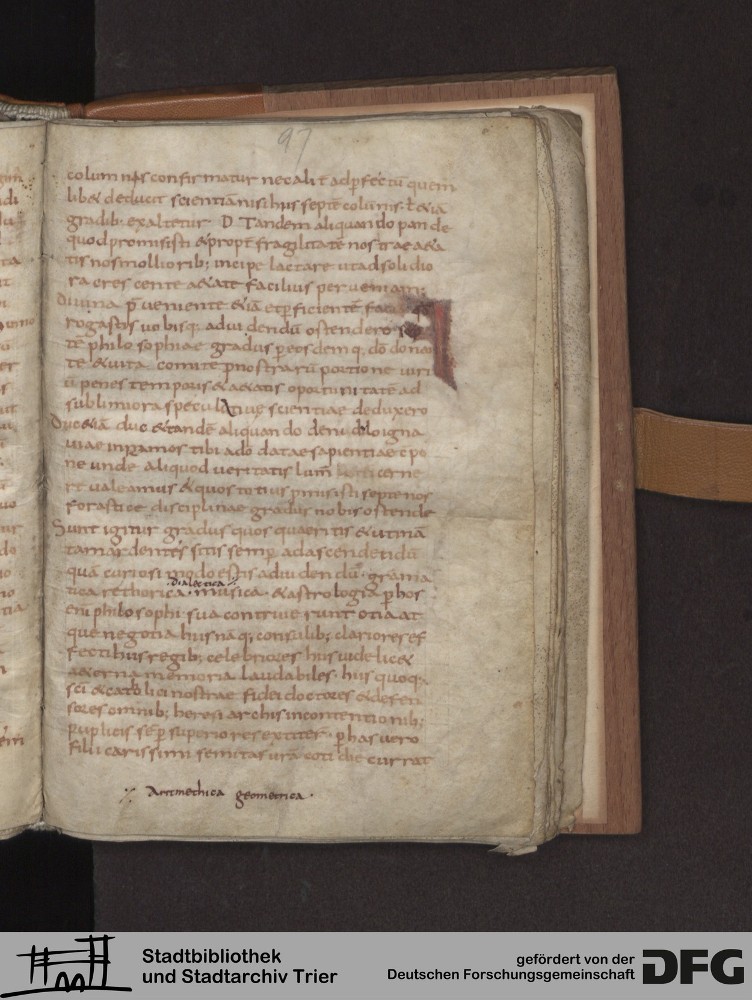 97
colum nis confirmatur nec alit̄ ad p̄fectū quem
lib& deducit scientiā nisi his septē colūnis t̄ &iā
gradib; exaltetur D Tandem aliquando pande
quod promisisti & propt̄ fragilitatē nostrae aeta
tis nos mollio rib; incipe lactare ut ad soli dio
ra cres cente aetate facilius perveniam;
Divina p̄ veniente &iā et p̄ficientē
rogastis vo bisq; adui dendū ostendero
tē philo sophiae gradus p̄ eos dem q; dō dona
te & vita comite p̄ nostrarū portio ne viri
ū penes temporis & aetatis oportunitatē ad
sublimiora specul tiue scientiae deduxero
Duc &iā duc & tandē aliquando de nidulo igna
viae in ramos tibi a dō datae sapientiae cōpo
ne unde aliquod veritatis lum̄ cerne
re valeamus & quos totius p̄misisti septenos
forasticae disciplinae gradus nobis ostende
Sunt igitur gradus quos quaeritis & utinā
tam ardentes sitis semp̄ ad ascendendū
quā curiosi modo estis ad uidendū grama
dialectica
tica rethorica musica & astrologia p̄ hos
enī philo sophi sua contriverunt otia at
que negotia his naq; consulib; clariores ef
fecti his regib; celebriores his videlic&
aeterna memoria laudabiles his quoq;
scī & catolici nostrae fidei doctores & defen
sores omnib; heresi archis in contentionib;
puplicis sēp superiores extiter p̄ has vero
filii carissimi semitas vrā cotidie currat
Aritmethica geometrica
Stadtbibliothek
und Stadtarchiv Trier
gefördert von der
Deutschen Forschungsgemeinschaft
DFG